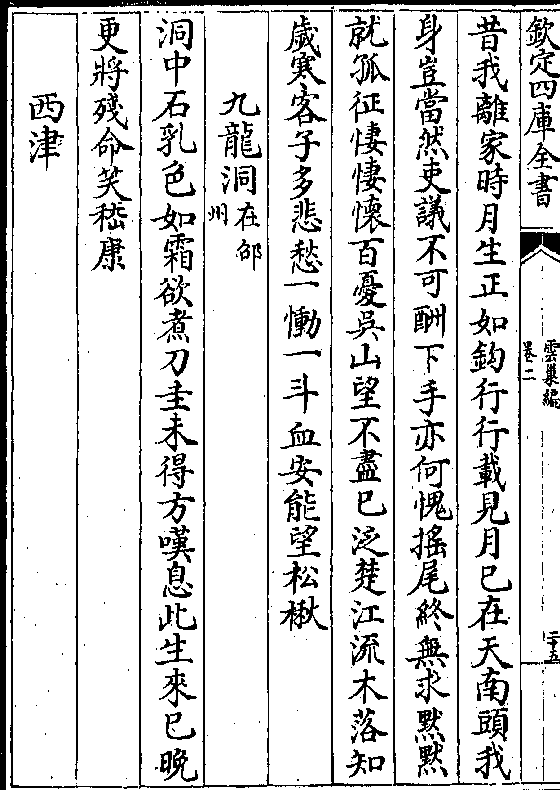 欽定四庫全書
雲巢編
卷二
二十五
昔我離家時月生正如鈎行行載見月已在天南頭我
身豈當然吏議不可酬下手亦何愧搖尾終無求默默
就孤征悽悽懷百憂吳山望不盡已泛楚江流木落知
歲寒客子多悲愁一慟一斗血安能望松楸
九龍洞在邠州
洞中石乳色如霜欲煮刀圭未得方嘆息此生來已晚
更將殘命笑嵇康
西津